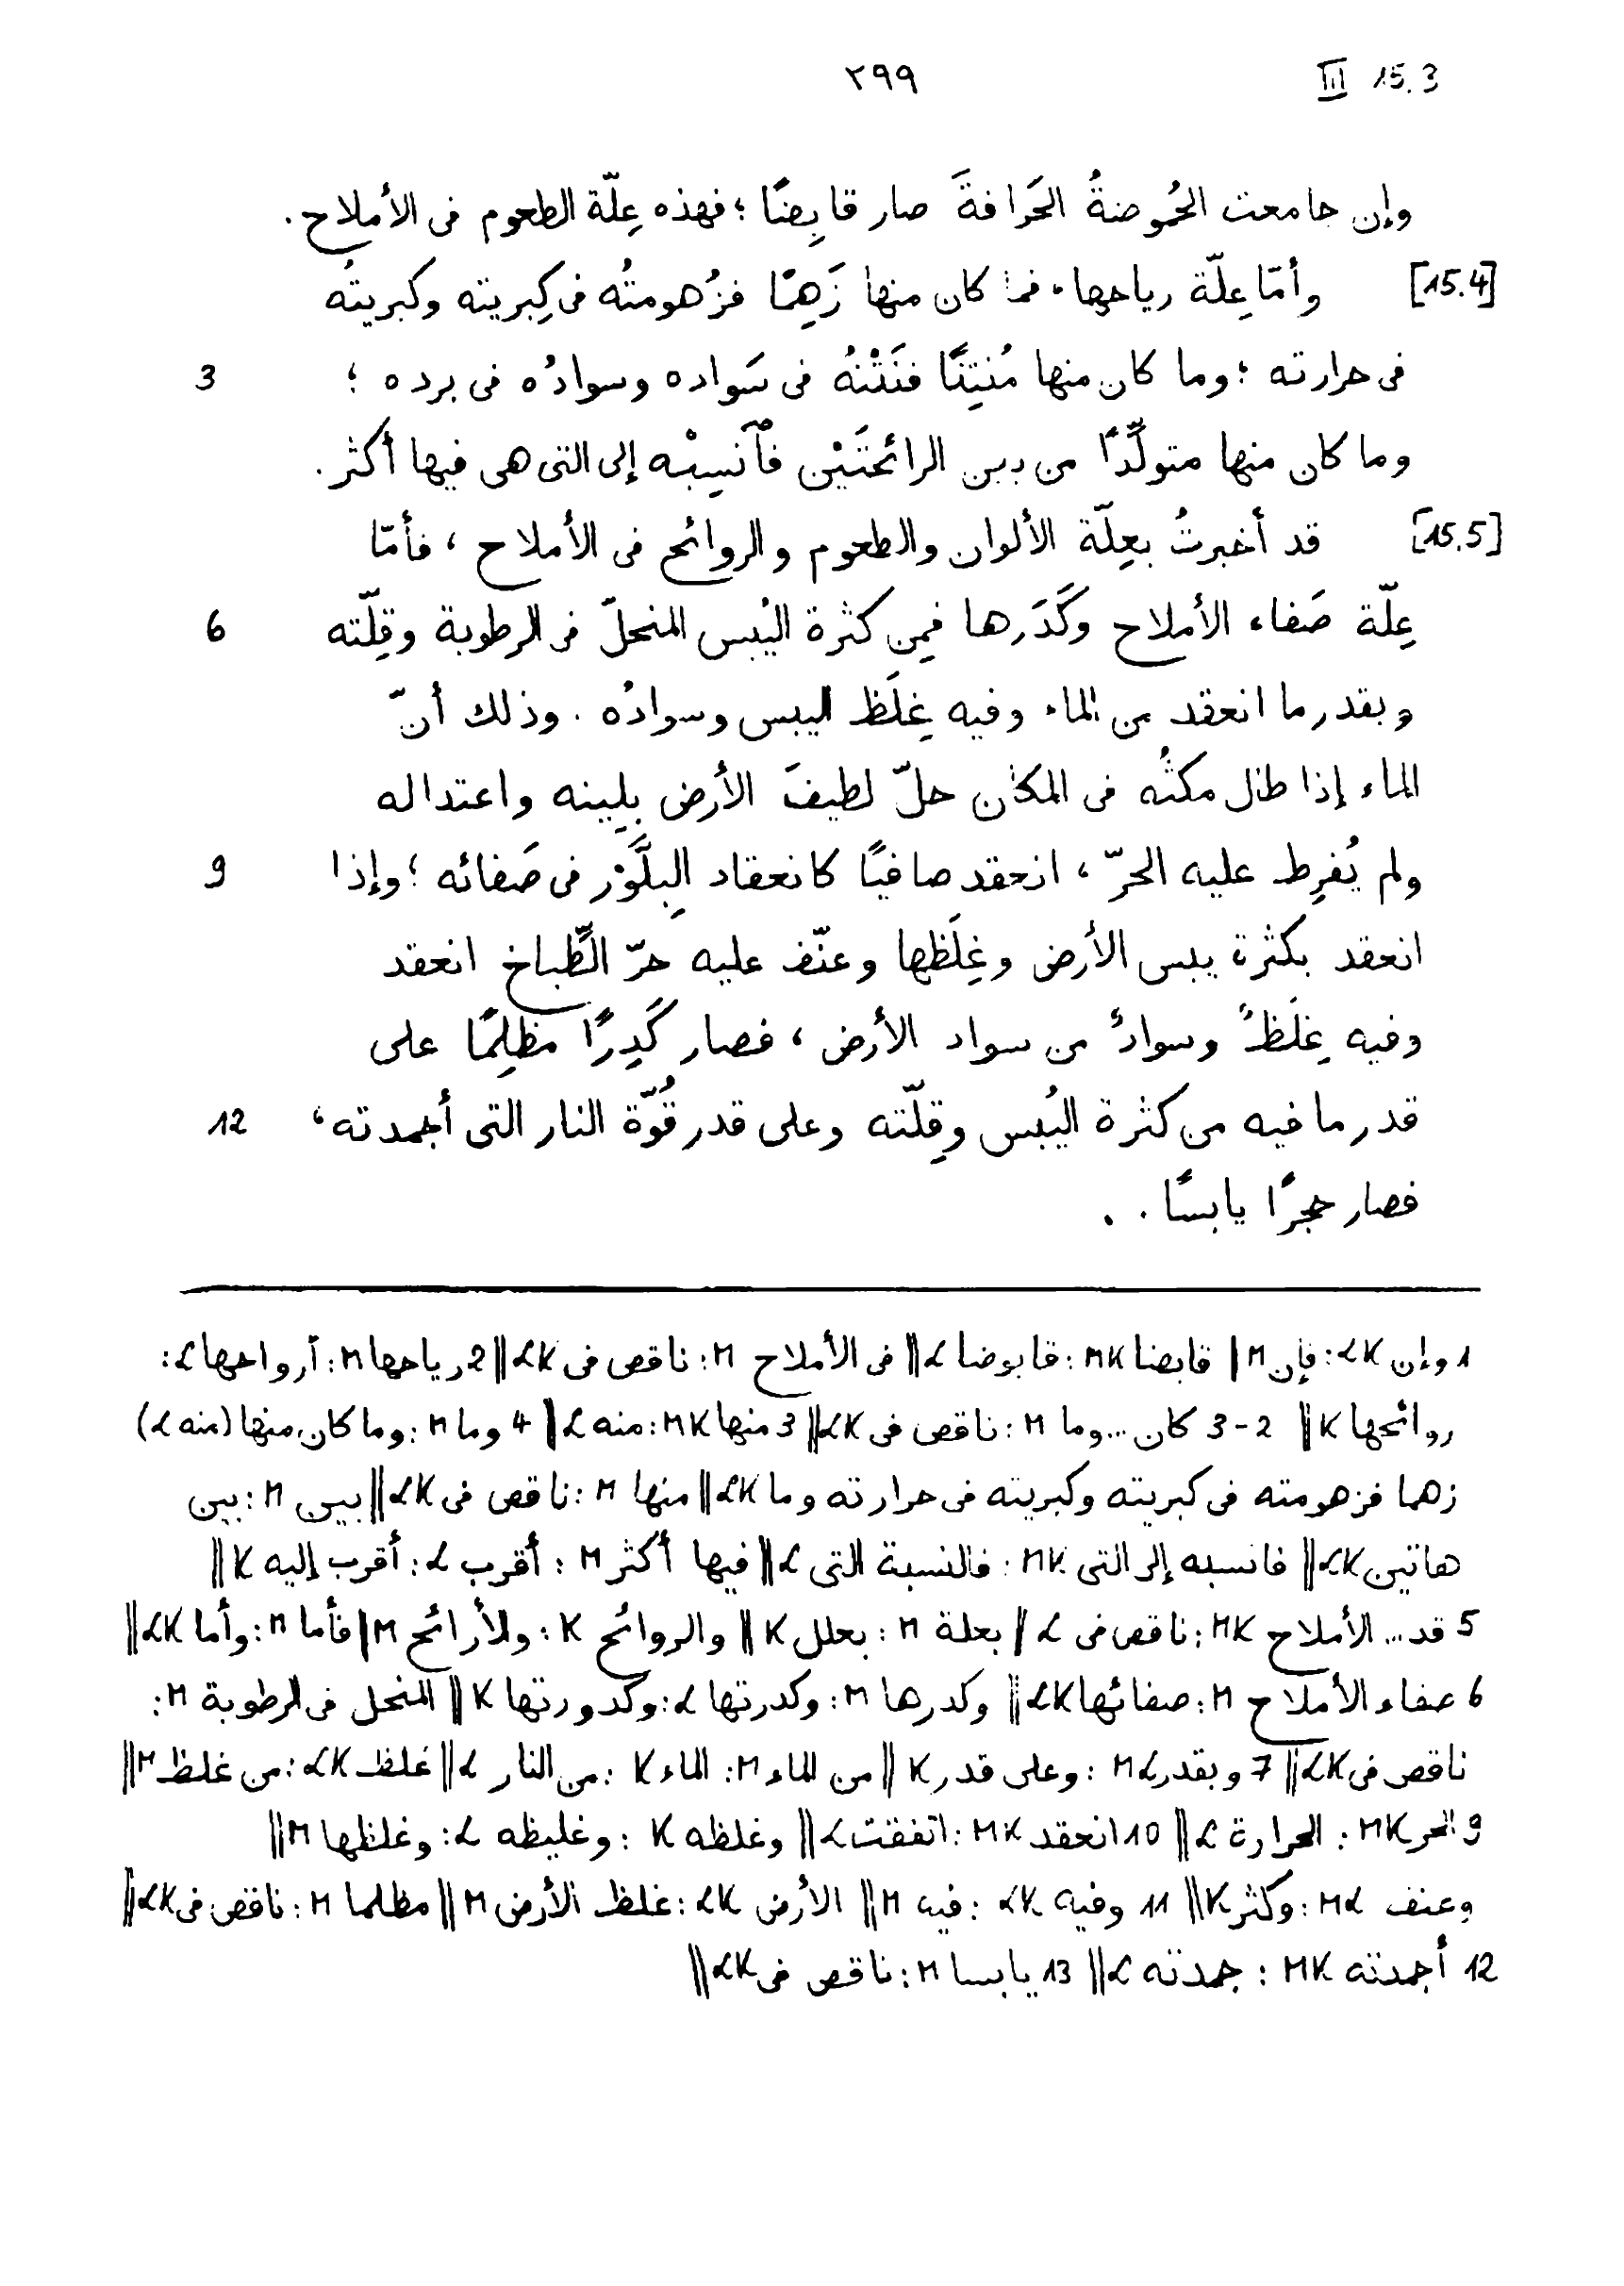 ٢٩٩ III 15.3
وإن جامعت الحُموضةُ الحَرافةَ صار قابِضًا ؛ فهذه عِلّة الطعوم فى الأملاح .
[15.4] وأمّا عِلّة رياحها ، فما كان منها زَهِمًا فزُهومتُه فى كِبريته وكبريتُه
3 فى حرارته ؛ وما كان منها مُنتِنًا فنَتْنُهُ فى سَواده وسوادُه فى برده ؛
وما كان منها متولِّدًا من بين الرائحتَيْن فٱنسِبْه إلى التى هى فيها أكثر .
[15.5] قد أخبرتُ بعِلّة الألوان والطعوم والروائح فى الأملاح ، فأمّا
6 عِلّة صَفاء الأملاح وكَدَرها فمِن كثرة اليُبس المنحلّ فى الرطوبة وقِلّته
وبقدر ما انعقد من الماء وفيه غِلَظ اليبس وسوادُه . وذلك أنّ
الماء إذا طال مكثُه فى المكان حلّ لطيفَ الأرض بلِينه واعتداله
9 ولم يُفرِط عليه الحرّ ، انعقد صافيًا كانعقاد البِلَّوْر فى صَفائه ؛ وإذا
انعقد بكثرة يبس الأرض وغِلَظها وعنّف عليه حرّ الطِّباخ انعقد
وفيه غِلَظٌ وسوادٌ من سواد الأرض ، فصار كَدِرًا مظلِمًا على
12 قدر ما فيه من كثرة اليُبس وقِلّته وعلى قدر قُوّة النار التى أجمدته ،
فصار حجرًا يابسًا . .
1 وإن LK : فإن M | قابضا MK : قابوضا L || فى الأملاح M : ناقص فى LK || 2 رياحها M : أرواحها L :
روائحها K || 2-3 كان ... وما M : ناقص فى LK || 3 منها MK : منه L || 4 وما M : وما كان منها (منه L)
زهما فزهومته فى كبريته وكبريته فى حرارته وما LK || منها M : ناقص فى LK || بين M : بين
هاتين LK || فانسبه إلى التى MK : فالنسبة التى L || فيها أكثر M : أقرب L : أقرب إليه K ||
5 قد ... الأملاح MK : ناقص فى L || بعلة M : بعلل K || والروائح K : والأرائح M | فأما M : وأما LK ||
6 صفاء الأملاح M : صفائها LK || وكدرها M : وكدرتها L : وكدورتها K || المنحل فى الرطوبة M :
ناقص فى LK || 7 وبقدر ML : وعلى قدر K || من الماء M : الماء K : من النار L || غلظ LK : من غلظ M ||
9 الحر MK : الحرارة L || 10 انعقد MK : اتفقت L || وغلظه K : وغليظه L : وغلظها M ||
وعنف ML : وكثر K || 11 وفيه LK : فيه M || الأرض LK : غلظ الأرض M || مظلما M : ناقص فى LK ||
12 أجمدته MK : جمدته L || 13 يابسا M : ناقص فى LK ||